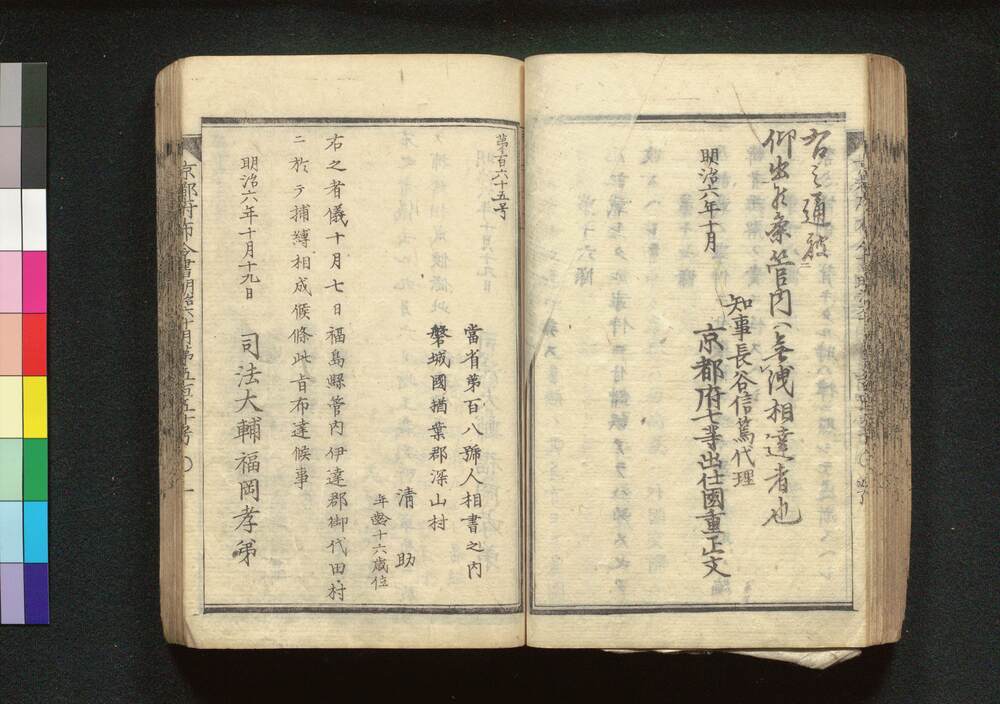 右之通被
仰出候条管内ヘ無洩相達者也
明治六年十月
知事長谷信篤代理
京都府七等出仕國重正文
第百六十五号
當省第百八號人相書之内
磐城國楢葉郡深山村
清助
年齢十六歳位
右之者儀十月七日福島縣管内伊達郡御代田村
ニ於テ捕縛相成候條此旨布達候事
明治六年十月十九日
司法大輔福岡孝弟
京都府布令書明治六十月第五百五十号〇一